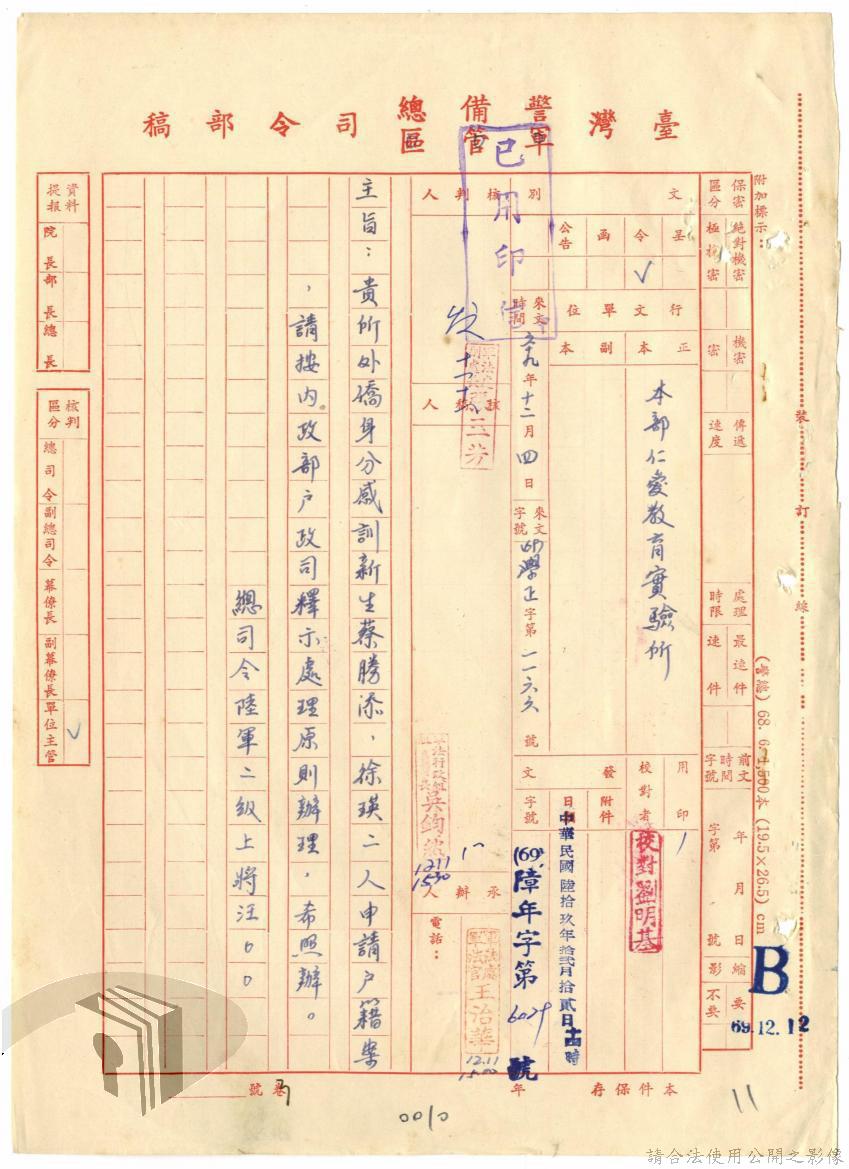 臺灣警備總司令部稿
軍管區
已用印信
附加標示：
保密區分
絶對機密
極機密
機密
密
傳遞速度
處理時限
最速件
速件
前文
時間
字號
年 月 日
字第 號
縮影
要
不要
B
69.12.12
裝訂線
(警總) 68. 6. 1,500本 (19.5×26.5) cm
文別
呈
令
函
公告
✓
行文單位
正本
副本
本部仁愛教育實驗所
來文時間
六九年十二月四日
來文字號
(69)學正字第一一六六號
用印
校對者
校對劉明基
發文
附件
日時
中華民國陸拾玖年拾貳月拾貳日
字號
(69)障年字第6029號
核判人
發
核稿人
軍法行政組
吳鈞
12.11
1530
承辦人
軍法處
軍法官
王治華
12.11
1500
電話：
主旨：貴所外僑身分感訓新生蔡勝添，徐瑛二人申請戶籍案
，請按內政部戶政司釋示處理原則辦理，希照辦。
總司令陸軍二級上將汪○○
資料提報
院長
部長
總長
核判區分
總司令
副總司令
幕僚長
副幕僚長
單位主管
✓
本件保存 年
卷號
0010
11
請合法使用公開之影像